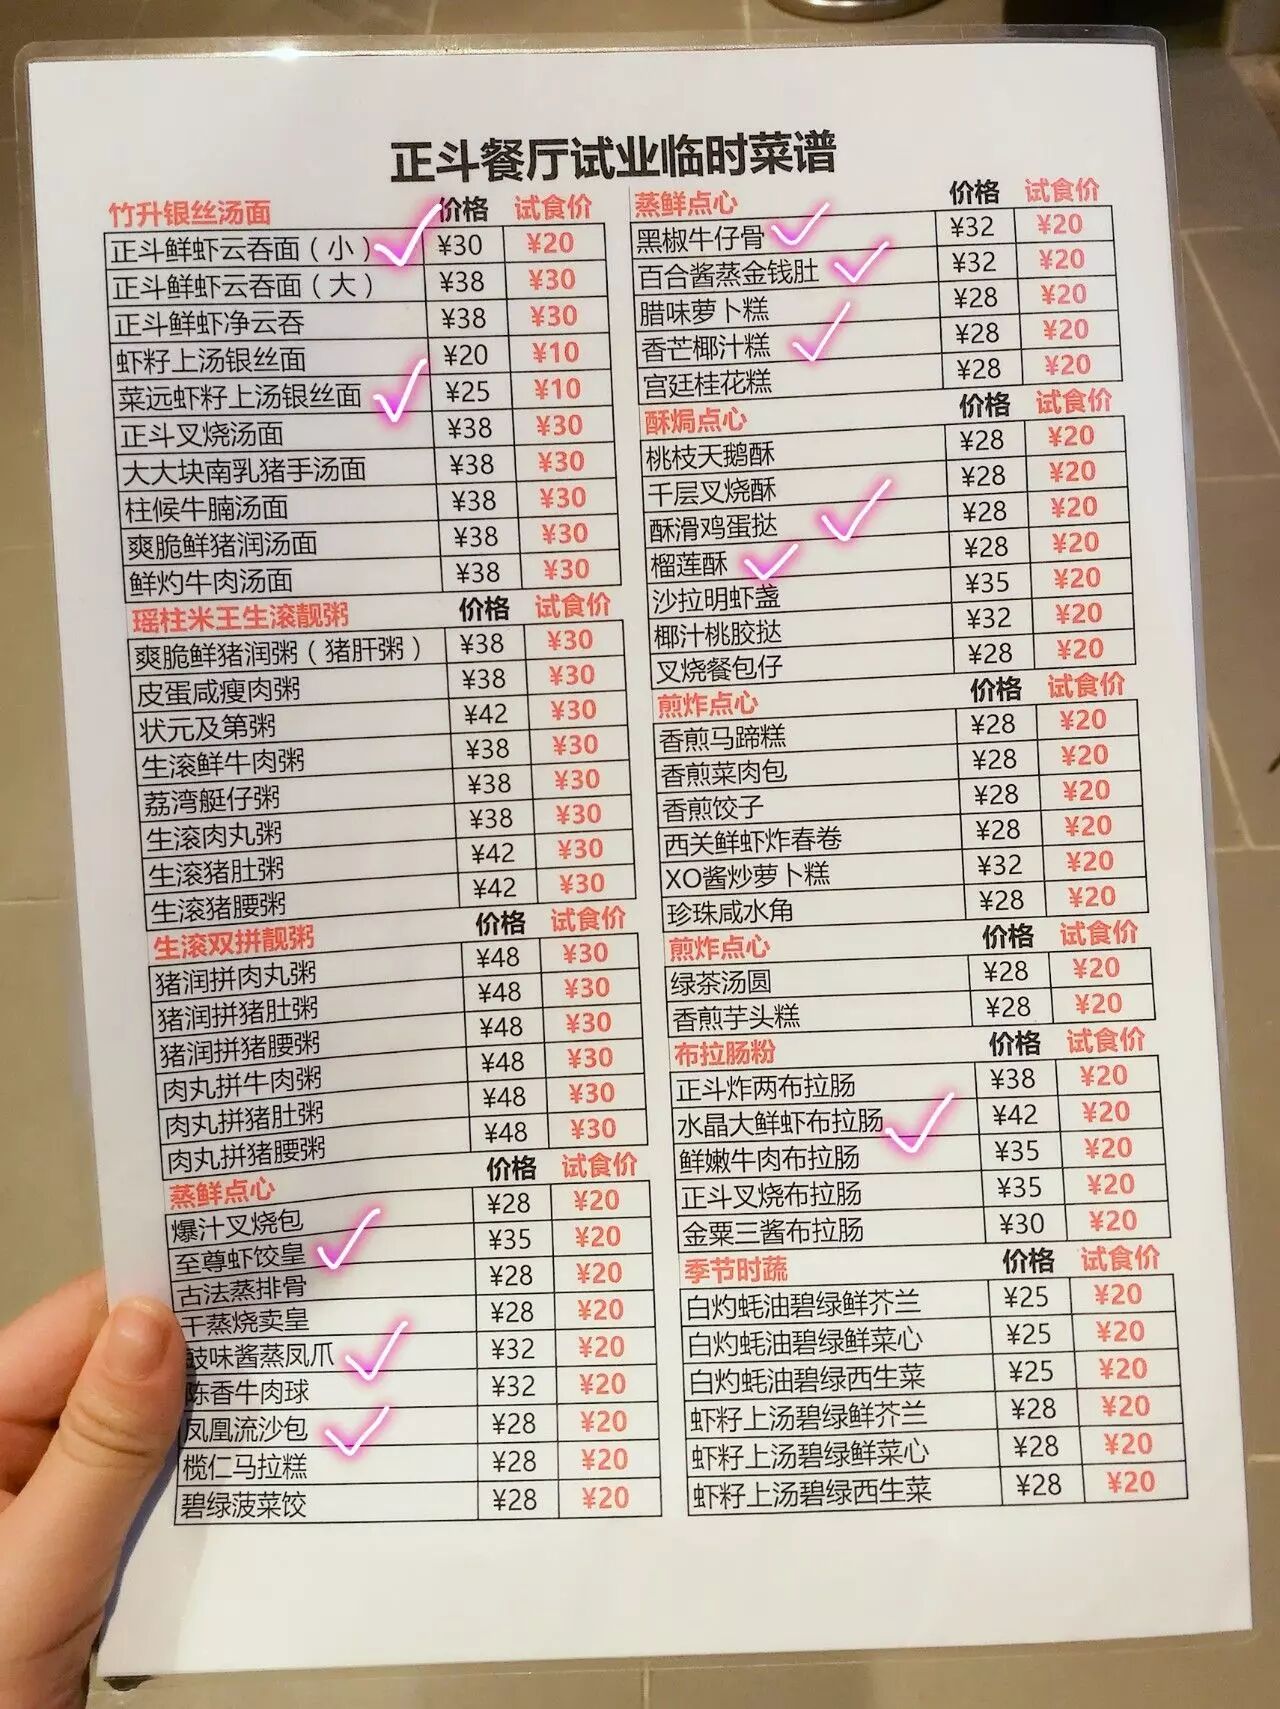 正斗餐厅试业临时菜谱
竹升银丝汤面 价格 试食价
正斗鲜虾云吞面（小） ¥30 ¥20
正斗鲜虾云吞面（大） ¥38 ¥30
正斗鲜虾净云吞 ¥38 ¥30
虾籽上汤银丝面 ¥20 ¥10
菜远虾籽上汤银丝面 ¥25 ¥10
正斗叉烧汤面 ¥38 ¥30
大大块南乳猪手汤面 ¥38 ¥30
柱候牛腩汤面 ¥38 ¥30
爽脆鲜猪润汤面 ¥38 ¥30
鲜灼牛肉汤面 ¥38 ¥30
瑶柱米王生滚靓粥 价格 试食价
爽脆鲜猪润粥（猪肝粥） ¥38 ¥30
皮蛋咸瘦肉粥 ¥38 ¥30
状元及第粥 ¥42 ¥30
生滚鲜牛肉粥 ¥38 ¥30
荔湾艇仔粥 ¥38 ¥30
生滚肉丸粥 ¥38 ¥30
生滚猪肚粥 ¥42 ¥30
生滚猪腰粥 ¥42 ¥30
生滚双拼靓粥 价格 试食价
猪润拼肉丸粥 ¥48 ¥30
猪润拼猪肚粥 ¥48 ¥30
猪润拼猪腰粥 ¥48 ¥30
肉丸拼牛肉粥 ¥48 ¥30
肉丸拼猪肚粥 ¥48 ¥30
肉丸拼猪腰粥 ¥48 ¥30
蒸鲜点心 价格 试食价
爆汁叉烧包 ¥28 ¥20
至尊虾饺皇 ¥35 ¥20
古法蒸排骨 ¥28 ¥20
干蒸烧卖皇 ¥28 ¥20
豉味酱蒸凤爪 ¥32 ¥20
陈香牛肉球 ¥32 ¥20
凤凰流沙包 ¥28 ¥20
榄仁马拉糕 ¥28 ¥20
碧绿菠菜饺 ¥28 ¥20
蒸鲜点心 价格 试食价
黑椒牛仔骨 ¥32 ¥20
百合酱蒸金钱肚 ¥32 ¥20
腊味萝卜糕 ¥28 ¥20
香芒椰汁糕 ¥28 ¥20
宫廷桂花糕 ¥28 ¥20
酥焗点心 价格 试食价
桃枝天鹅酥 ¥28 ¥20
千层叉烧酥 ¥28 ¥20
酥滑鸡蛋挞 ¥28 ¥20
榴莲酥 ¥28 ¥20
沙拉明虾盏 ¥35 ¥20
椰汁桃胶挞 ¥32 ¥20
叉烧餐包仔 ¥28 ¥20
煎炸点心 价格 试食价
香煎马蹄糕 ¥28 ¥20
香煎菜肉包 ¥28 ¥20
香煎饺子 ¥28 ¥20
西关鲜虾炸春卷 ¥28 ¥20
XO酱炒萝卜糕 ¥32 ¥20
珍珠咸水角 ¥28 ¥20
煎炸点心 价格 试食价
绿茶汤圆 ¥28 ¥20
香煎芋头糕 ¥28 ¥20
布拉肠粉 价格 试食价
正斗炸两布拉肠 ¥38 ¥20
水晶大鲜虾布拉肠 ¥42 ¥20
鲜嫩牛肉布拉肠 ¥35 ¥20
正斗叉烧布拉肠 ¥35 ¥20
金粟三酱布拉肠 ¥30 ¥20
季节时蔬 价格 试食价
白灼蚝油碧绿鲜芥兰 ¥25 ¥20
白灼蚝油碧绿鲜菜心 ¥25 ¥20
白灼蚝油碧绿西生菜 ¥25 ¥20
虾籽上汤碧绿鲜芥兰 ¥28 ¥20
虾籽上汤碧绿鲜菜心 ¥28 ¥20
虾籽上汤碧绿西生菜 ¥28 ¥20